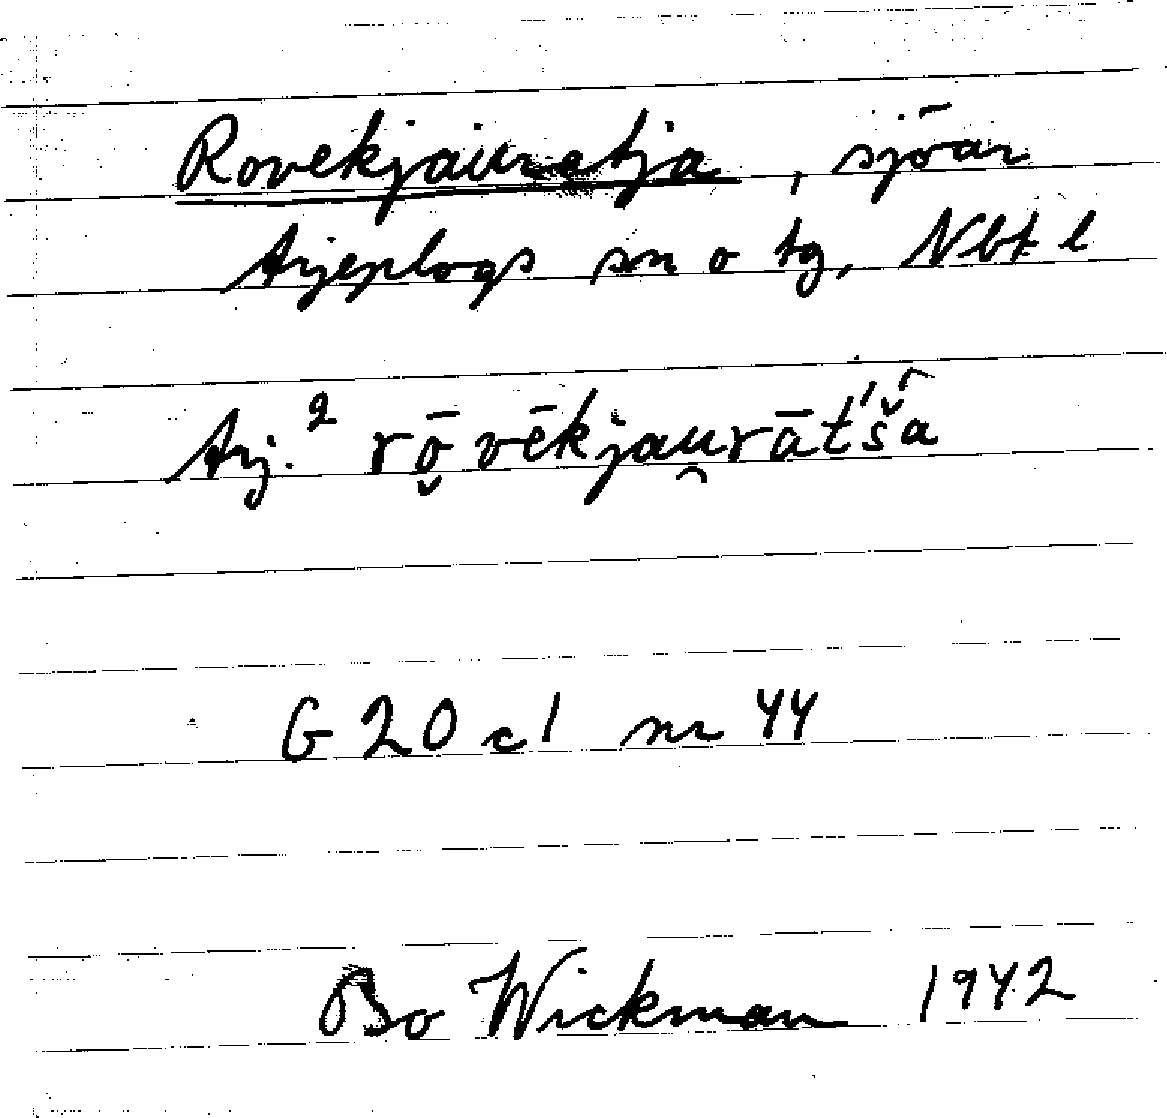 Rovekjauretja, sjöar
Arjeplogs sn o tg, Nbt l
Arj.² rō̬vēkjau̯rāt́'š́â
G 20 c1 nr 44
Bo Wickman 1942